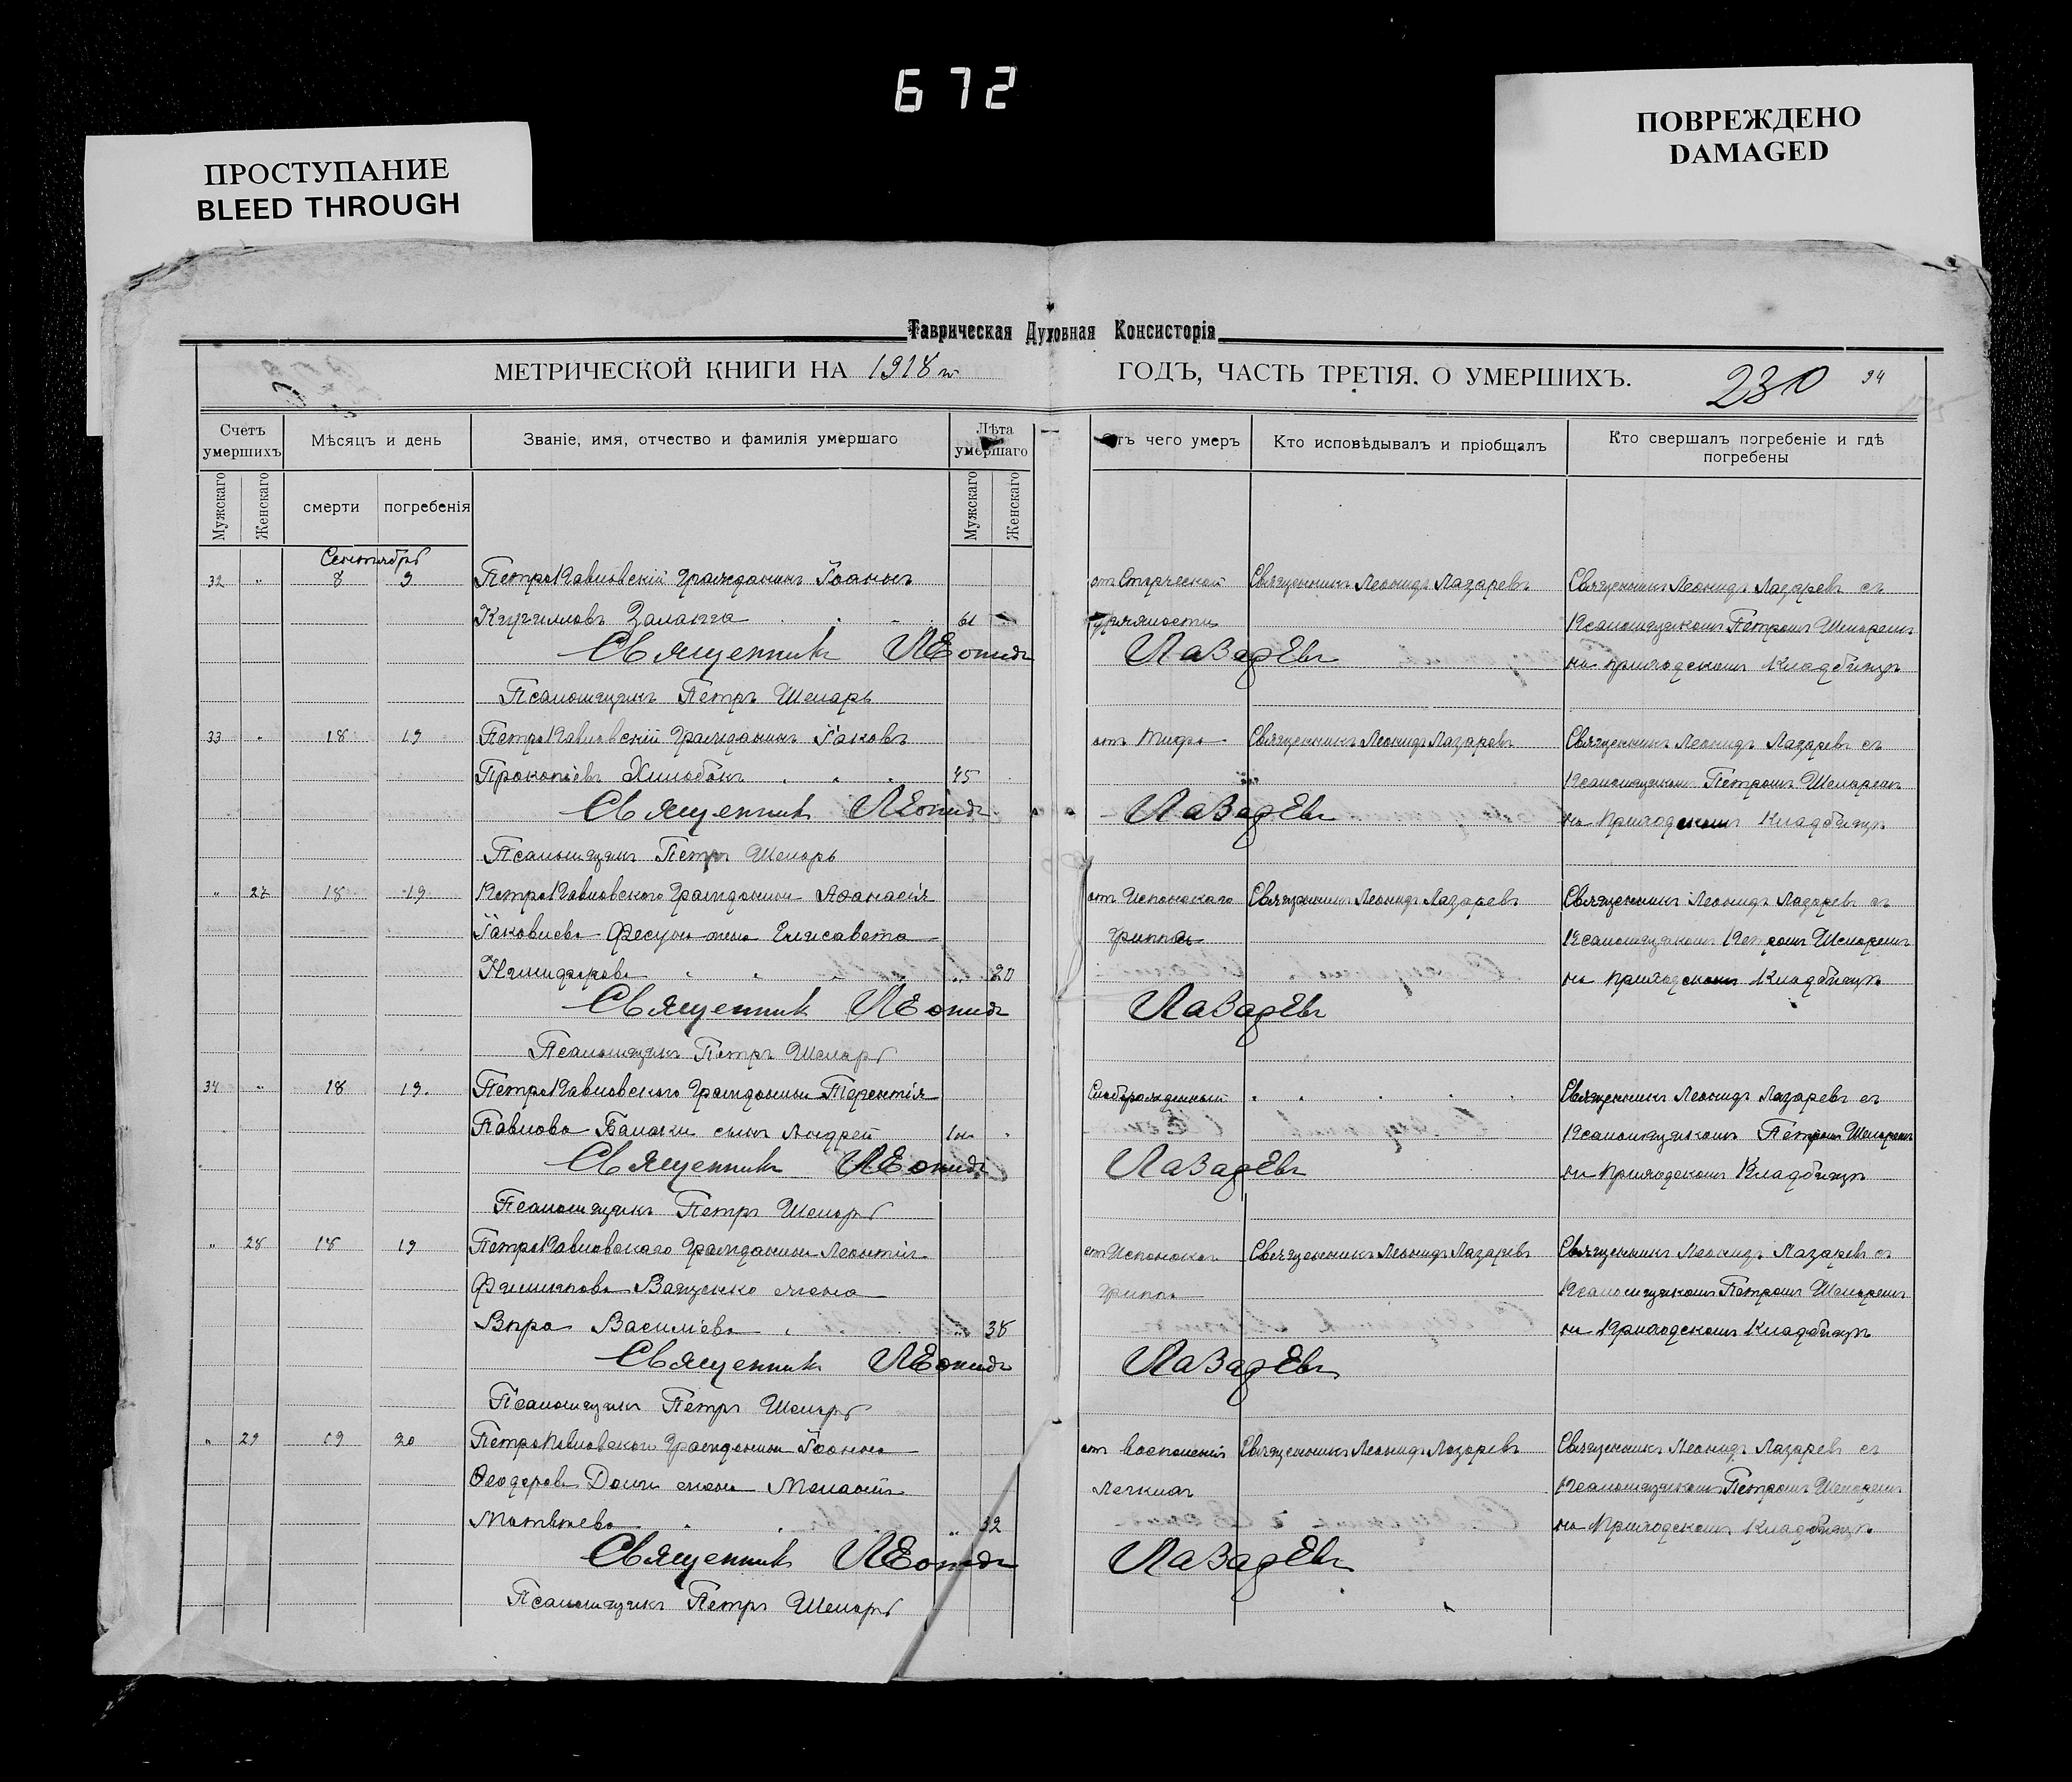 672
ПРОСТУПАНИЕ
BLEED THROUGH
ПОВРЕЖДЕНО
DAMAGED
Таврическая Духовная Консисторія
МЕТРИЧЕСКОЙ КНИГИ НА 1918 г. ГОДЪ, ЧАСТЬ ТРЕТІЯ. О УМЕРШИХЪ. 230 94
Счетъ умершихъ
Мѣсяцъ и день
Званіе, имя, отчество и фамилія умершаго
Лѣта умершаго
Отъ чего умеръ
Кто исповѣдывалъ и пріобщалъ
Кто свершалъ погребеніе и гдѣ погребены
Мужскаго Женскаго смерти погребенія Мужскаго Женскаго
Сентябрь
32 " 8 9 ПетроПавловскій Гражданинъ Іоаннъ от Старческой Священникъ Леонидъ Лазаревъ Священникъ Леонидъ Лазаревъ съ
Кирилловъ 61 дряхлости Псаломщикомъ Петромъ Шепаремъ
Священникъ Леонидъ Лазаревъ на приходскомъ Кладбищѣ
Псаломщикъ Петръ Шепарь
33 " 18 19 ПетроПавловскій Гражданинъ Іаковъ отъ Тифа Священникъ Леонидъ Лазаревъ Священникъ Леонидъ Лазаревъ съ
Прокопіевъ Хилобокъ 45 Псаломщикомъ Петромъ Шепаремъ
Священникъ Леонидъ Лазаревъ на Приходскомъ Кладбищѣ
Псаломщикъ Петръ Шепарь
" 27 18 19 ПетроПавловского Гражданина Афанасія от Испанскаго Священникъ Леонидъ Лазаревъ Священникъ Леонидъ Лазаревъ съ
Іаковлева Фесуна жена Елисавета Гриппа Псаломщикомъ Петромъ Шепаремъ
" 20 на Приходскомъ Кладбищѣ
Священникъ Леонидъ Лазаревъ
Псаломщикъ Петръ Шепарь
34 " 18 19. ПетроПавловского Гражданина Терентія Слаборожденный Священникъ Леонидъ Лазаревъ съ
Павлова сынъ Андрей Псаломщикомъ Петромъ Шепаремъ
Священникъ Леонидъ Лазаревъ на Приходскомъ Кладбищѣ
Псаломщикъ Петръ Шепарь
" 28 18 19 ПетроПавловскаго Гражданина Леонтія от Испанскаго Священникъ Леонидъ Лазаревъ Священникъ Леонидъ Лазаревъ съ
Филиппова Ващенко жена Гриппа Псаломщикомъ Петромъ Шепаремъ
Вѣра Василіева " 38 на Приходскомъ Кладбищѣ
Священникъ Леонидъ Лазаревъ
Псаломщикъ Петръ Шепарь
" 29 19 20 ПетроПавловского Гражданина Іоанна от воспаленія Священникъ Леонидъ Лазаревъ Священникъ Леонидъ Лазаревъ съ
Феодорова жена Меланія Легкихъ Псаломщикомъ Петромъ Шепаремъ
Матвѣева " 32 на Приходскомъ Кладбищѣ
Священникъ Леонидъ Лазаревъ
Псаломщикъ Петръ Шепарь